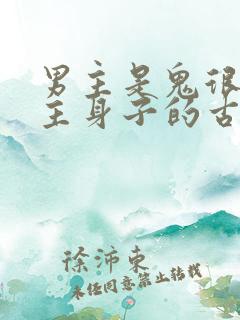 男主是鬼很
主身子的古
徐沛东
未经同意禁止转载